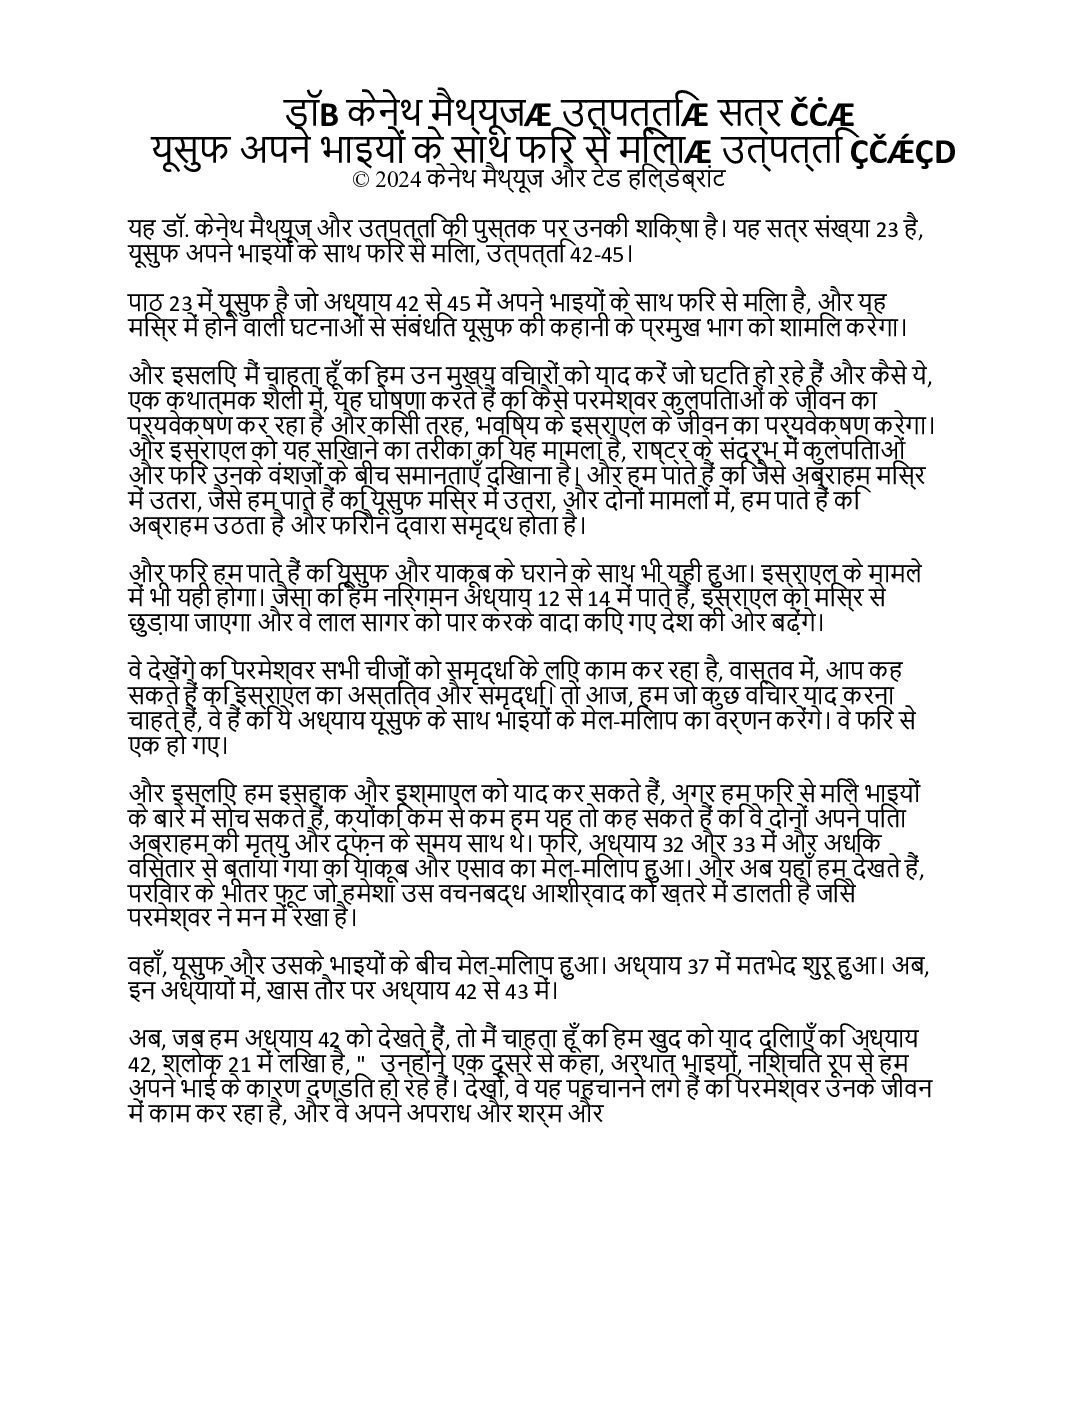 डॉB केनेथ मैथ्यूजÆ उत्पत्तिÆ सत्र ČĊÆ
यूसुफ अपने भाइयों के साथ फिर से मिलाÆ उत्पत्ति ÇČǼÇD
© 2024 केनेथ मैथ्यूज और टेड हिल्डेब्रांट
यह डॉ. केनेथ मैथ्यूज और उत्पत्ति की पुस्तक पर उनकी शिक्षा है। यह सत्र संख्या 23 है,
यूसुफ अपने भाइयों के साथ फिर से मिला, उत्पत्ति 42-45।
पाठ 23 में यूसुफ है जो अध्याय 42 से 45 में अपने भाइयों के साथ फिर से मिला है, और यह
मिस्र में होने वाली घटनाओं से संबंधित यूसुफ की कहानी के प्रमुख भाग को शामिल करेगा।
और इसलिए मैं चाहता हूँ कि हम उन मुख्य विचारों को याद करें जो घटित हो रहे हैं और कैसे ये,
एक कथात्मक शैली में, यह घोषणा करते हैं कि कैसे परमेश्वर कुलपिताओं के जीवन का
पर्यवेक्षण कर रहा है और किसी तरह, भविष्य के इस्राएल के जीवन का पर्यवेक्षण करेगा।
और इस्राएल को यह सिखाने का तरीका कि यह मामला है, राष्ट्र के संदर्भ में कुलपिताओं
और फिर उनके वंशजों के बीच समानताएँ दिखाना है। और हम पाते हैं कि जैसे अब्राहम मिस्र
में उतरा, जैसे हम पाते हैं कि यूसुफ मिस्र में उतरा, और दोनों मामलों में, हम पाते हैं कि
अब्राहम उठता है और फिरौन द्वारा समृद्ध होता है।
और फिर हम पाते हैं कि यूसुफ और याकूब के घराने के साथ भी यही हुआ। इस्राएल के मामले
में भी यही होगा। जैसा कि हम निर्गमन अध्याय 12 से 14 में पाते हैं, इस्राएल को मिस्र से
छुड़ाया जाएगा और वे लाल सागर को पार करके वादा किए गए देश की ओर बढ़ेंगे।
वे देखेंगे कि परमेश्वर सभी चीजों को समृद्धि के लिए काम कर रहा है, वास्तव में, आप कह
सकते हैं कि इस्राएल का अस्तित्व और समृद्धि। तो आज, हम जो कुछ विचार याद करना
चाहते हैं, वे हैं कि ये अध्याय यूसुफ के साथ भाइयों के मेल-मिलाप का वर्णन करेंगे। वे फिर से
एक हो गए।
और इसलिए हम इसहाक और इश्माएल को याद कर सकते हैं, अगर हम फिर से मिले भाइयों
के बारे में सोच सकते हैं, क्योंकि कम से कम हम यह तो कह सकते हैं कि वे दोनों अपने पिता
अब्राहम की मृत्यु और दफ़न के समय साथ थे। फिर, अध्याय 32 और 33 में और अधिक
विस्तार से बताया गया कि याकूब और एसाव का मेल-मिलाप हुआ। और अब यहाँ हम देखते हैं,
परिवार के भीतर फूट जो हमेशा उस वचनबद्ध आशीर्वाद को ख़तरे में डालती है जिसे
परमेश्वर ने मन में रखा है।
वहाँ, यूसुफ और उसके भाइयों के बीच मेल-मिलाप हुआ। अध्याय 37 में मतभेद शुरू हुआ। अब,
इन अध्यायों में, खास तौर पर अध्याय 42 से 43 में।
अब, जब हम अध्याय 42 को देखते हैं, तो मैं चाहता हूँ कि हम खुद को याद दिलाएँ कि अध्याय
42, श्लोक 21 में लिखा है, " उन्होंने एक दूसरे से कहा, अर्थात भाइयों, निश्चित रूप से हम
अपने भाई के कारण दण्डित हो रहे हैं। देखो, वे यह पहचानने लगे हैं कि परमेश्वर उनके जीवन
में काम कर रहा है, और वे अपने अपराध और शर्म और